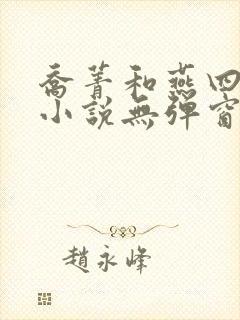 喬菁和燕四
小說無彈窗
趙永峰